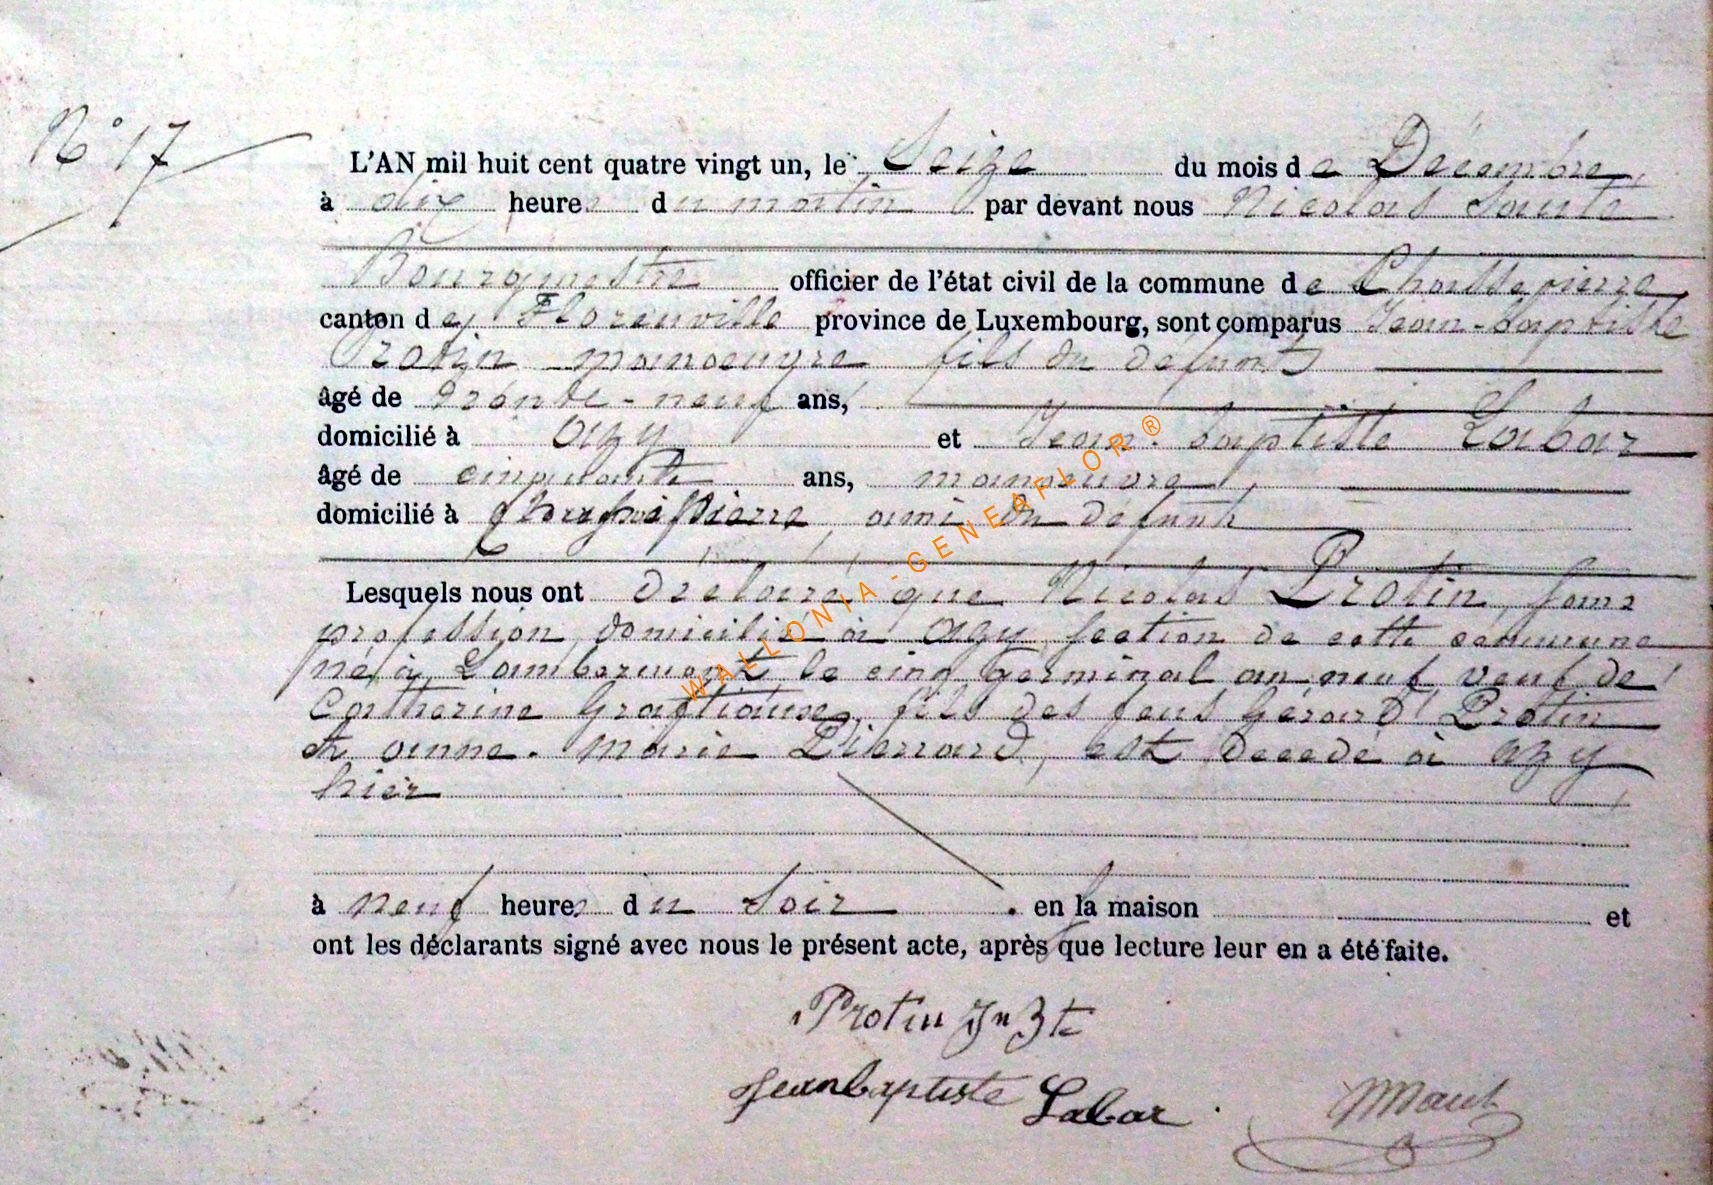 N° 17
L'AN mil huit cent quatre vingt un, le Seize du mois de Décembre,
à dix heures du matin par devant nous Nicolas
Bourgmestre officier de l'état civil de la commune de Chassepierre
canton de Florenville province de Luxembourg, sont comparus Jean-baptiste
Protin manoeuvre fils du défunt
âgé de trente-neuf ans,
domicilié à azy et Jean-baptiste Labar
âgé de cinquante ans, manoeuvre
domicilié à Chassepierre ami du defunt
Lesquels nous ont déclaré que Nicolas Protin, sans
profession domicilié à azy section de cette commune
né à Lambermont le cinq germinal an neuf veuf de
Catherine fils des feus Gérard Protin
et anne-marie Pierrard, est décédé à azy
hier
à neuf heures du soir . en la maison et
ont les déclarants signé avec nous le présent acte, après que lecture leur en a été faite.
Protin Jn Bte
Jeanbaptiste Labar
WALLONIA-GENEAFLOR®